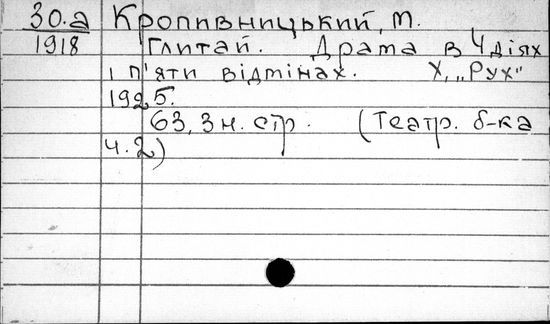 30.а Кропивницький, М.
1918 Глитай. Драма в 4 діях
і п'яти відмінах. Х, „Рух"
1925.
63, 3 н. стр. (Театр. б-ка
ч. 2)